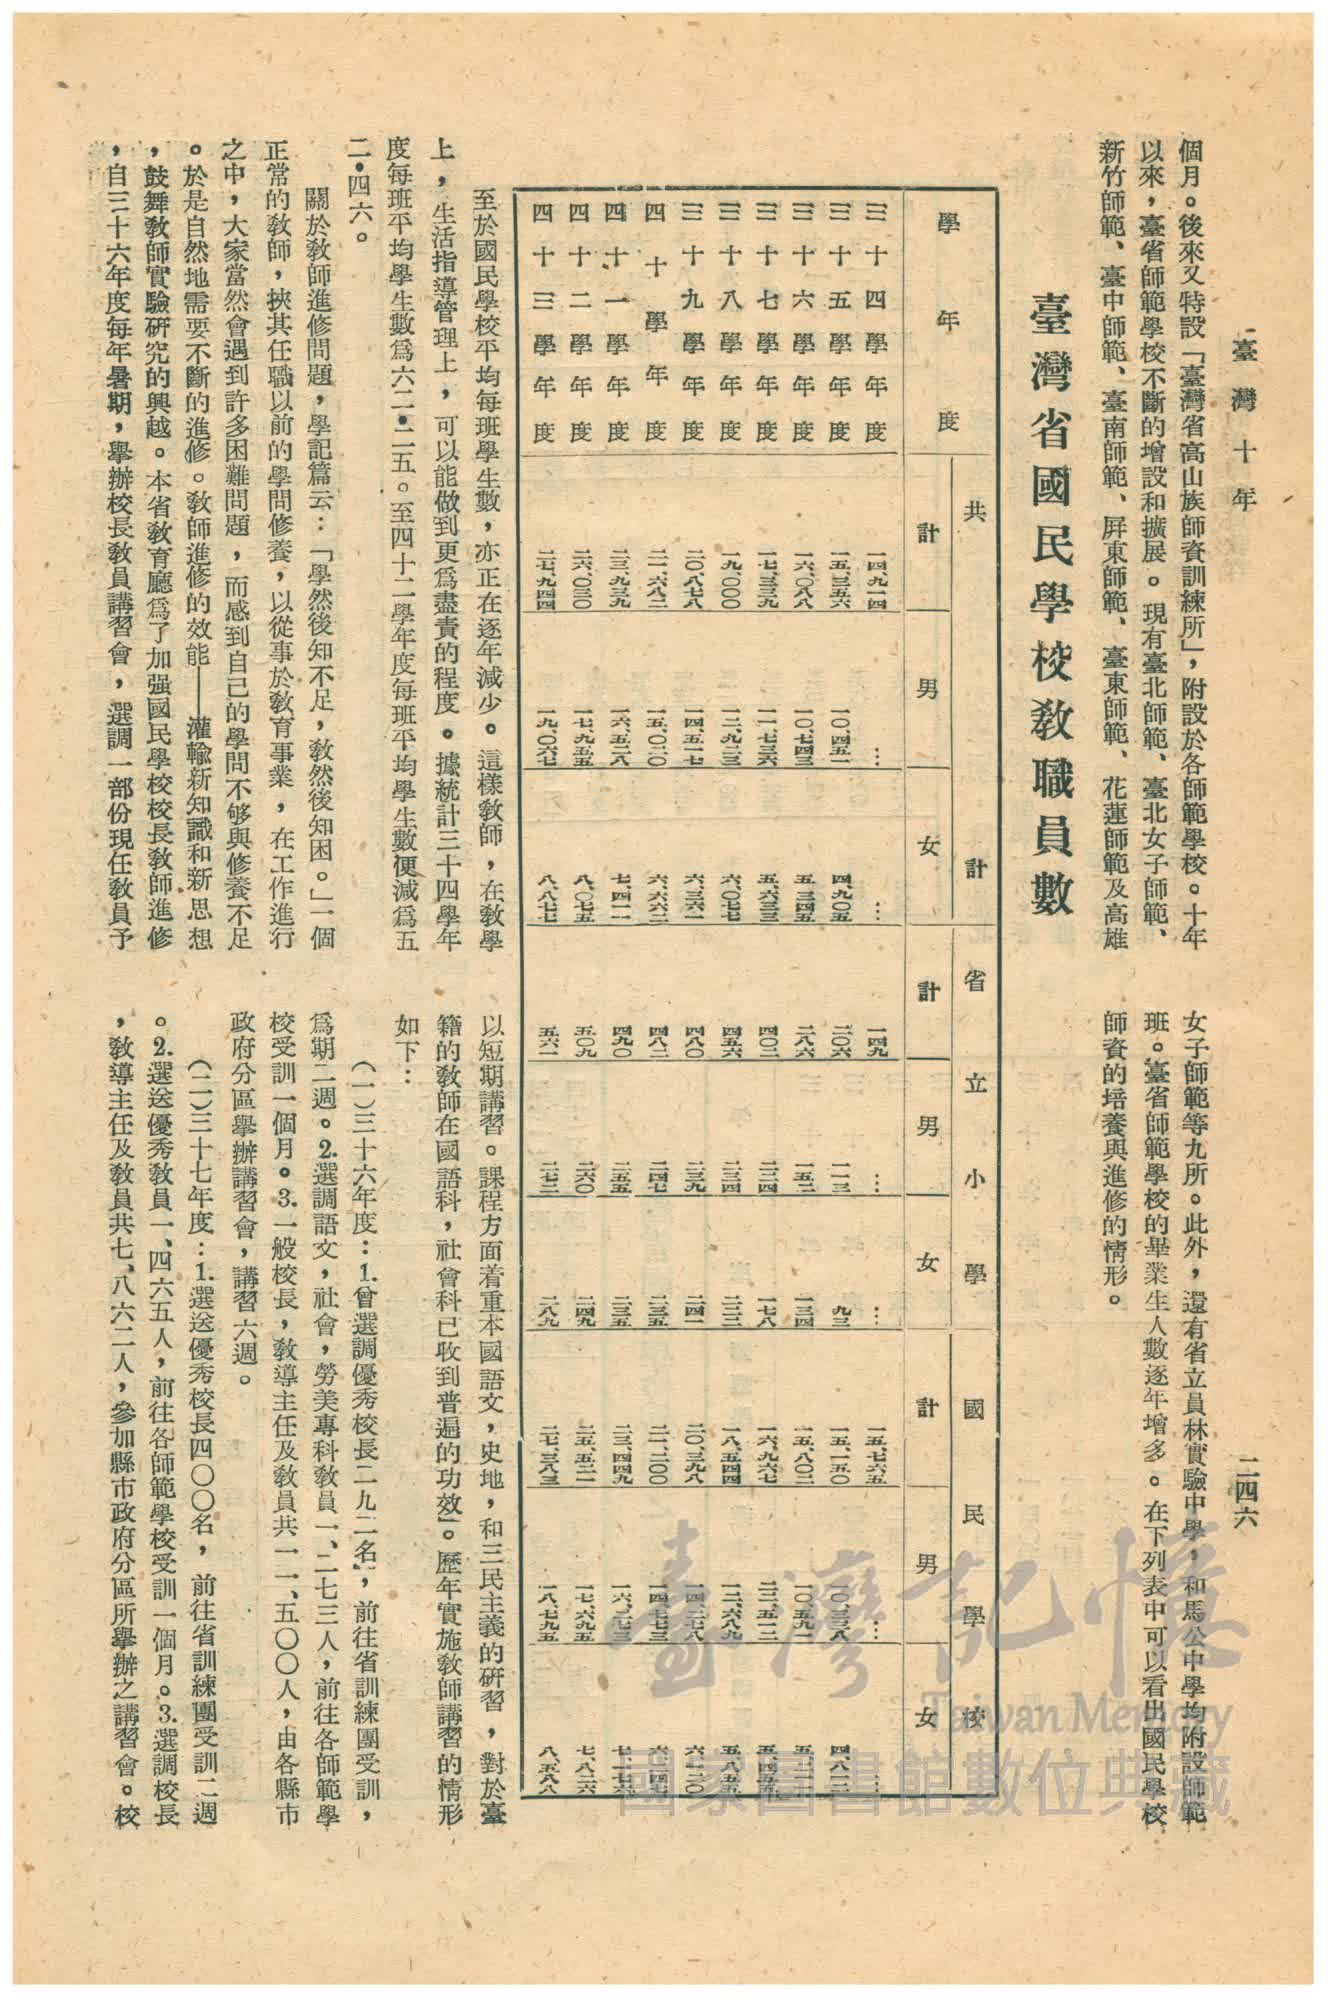 臺灣十年
二四六
個月。後來又特設「臺灣省高山族師資訓練所」,附設於各師範學校。十年
以來,臺省師範學校不斷的增設和擴展。現有臺北師範、臺北女子師範、
新竹師範、臺中師範、臺南師範、屏東師範、臺東師範、花蓮師範及高雄
女子師範等九所。此外,還有省立員林實驗中學,和馬公中學均附設師範
班。臺省師範學校的畢業生人數逐年增多。在下列表中可以看出國民學校
師資的培養與進修的情形。
臺灣省國民學校教職員數
學年度 共計 省立小學 國民學校
計 男 女 計 男 女 計 男 女
三十四學年度 一四、九一四 … … 一四九 … … 一五、七六五 … …
三十五學年度 一五、三五六 一〇、四五一 四、九〇五 二〇六 一一三 九三 一五、一五〇 一〇、三三八 四、八一二
三十六學年度 一六、〇八八 一〇、七四三 五、三四五 二八六 一五二 一三四 一五、八〇二 一〇、五九一 五、二一一
三十七學年度 一七、三三九 一一、七三六 五、六三三 四〇二 二二四 一七八 一六、九六七 一一、五一二 五、四五五
三十八學年度 一九、〇〇〇 一二、九二三 六、〇七七 四五六 二三四 二二二 一八、五四四 一二、六八九 五、八五五
三十九學年度 二〇、八七八 一四、五一七 六、三六一 四八〇 二三九 二四一 二〇、三九八 一四、二七八 六、一二〇
四十學年度 二一、六八二 一五、〇二〇 六、六六二 四八二 二四七 二三五 二一、二〇〇 一四、七七三 六、四二七
四十一學年度 二三、九三九 一六、五二八 七、四一一 四九〇 二五五 二三五 二三、四四九 一六、二七三 七、一七六
四十二學年度 二六、〇三〇 一七、九五五 八、〇七五 五〇九 二六〇 二四九 二五、五二一 一七、六九五 七、八二六
四十三學年度 二七、九四四 一九、〇六七 八、八七七 五六一 二七二 二八九 二七、三八三 一八、七九五 八、五八八
至於國民學校平均每班學生數,亦正在逐年減少。這樣教師,在教學
上,生活指導管理上,可以能做到更爲盡責的程度。據統計三十四學年
度每班平均學生數爲六二・二五。至四十二學年度每班平均學生數便減爲五
二・四六。
關於教師進修問題,學記篇云:「學然後知不足,教然後知困。」一個
正常的教師,挾其任職以前的學問修養,以從事於教育事業,在工作進行
之中,大家當然會遇到許多困難問題,而感到自己的學問不够與修養不足
。於是自然地需要不斷的進修。教師進修的效能——灌輸新知識和新思想
,鼓舞教師實驗研究的興越。本省教育廳爲了加强國民學校校長教師進修
,自三十六年度每年暑期,舉辦校長教員講習會,選調一部份現任教員予
以短期講習。課程方面着重本國語文,史地,和三民主義的研習,對於臺
籍的教師在國語科,社會科已收到普遍的功效」。歷年實施教師講習的情形
如下:
(一)三十六年度:1.曾選調優秀校長二九二名,前往省訓練團受訓,
爲期二週。2.選調語文,社會,勞美專科教員一、二七三人,前往各師範學
校受訓一個月。3.一般校長,教導主任及教員共一一、五〇〇人,由各縣市
政府分區舉辦講習會,講習六週。
(二)三十七年度:1.選送優秀校長四〇〇名,前往省訓練團受訓二週
。2.選送優秀教員一、四六五人,前往各師範學校受訓一個月。3.選調校長
,教導主任及教員共七、八六二人,參加縣市政府分區所舉辦之講習會。校
臺灣記憶
Taiwan Memory
國家圖書館數位典藏